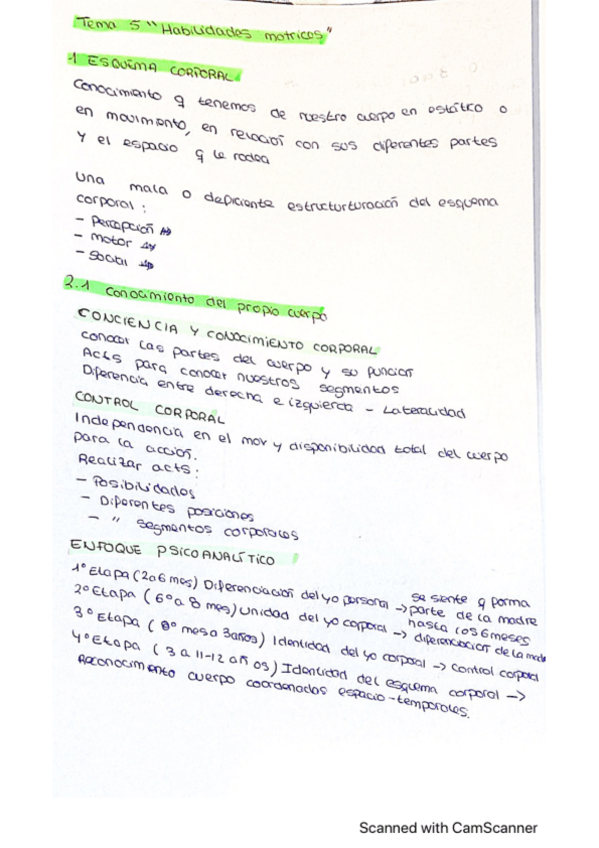 Tema 5 "Habilidades motrices"
1 ESQUEMA CORPORAL
Conocimiento q tenemos de nuestro cuerpo en estático o
en movimiento, en relación con sus diferentes partes
Y el espacio q le rodea
Una mala o deficiente estructurturación del esquema
corporal:
- Percepción
- Motor
- Social
2.1 Conocimiento del propio cuerpo
CONCIENCIA Y CONOCIMIENTO CORPORAL
conocer las partes del cuerpo y su función
Acts para conocer nuestros segmentos
Diferencia entre derecha e izquierda - Lateralidad
CONTROL CORPORAL
Independencia en el mov y disponibilidad total del cuerpo
para la acción.
Realizar acts:
- Posibilidades
- Diferentes posiciones
- " segmentos corporales
ENFOQUE PSICOANALÍTICO
1º Etapa (2 a 6 mes) Diferenciación del yo personal → se siente q forma parte de la madre hasta los 6 meses
2º Etapa (6º a 8 mes) Unidad del yo corporal → diferenciación de la madre
3º Etapa (8º mes a 3 años) Identidad del yo corporal → Control corporal
4º Etapa (3 a 11-12 años) Identidad del esquema corporal →
Reconocimiento cuerpo coordenadas espacio-temporales.
Scanned with CamScanner